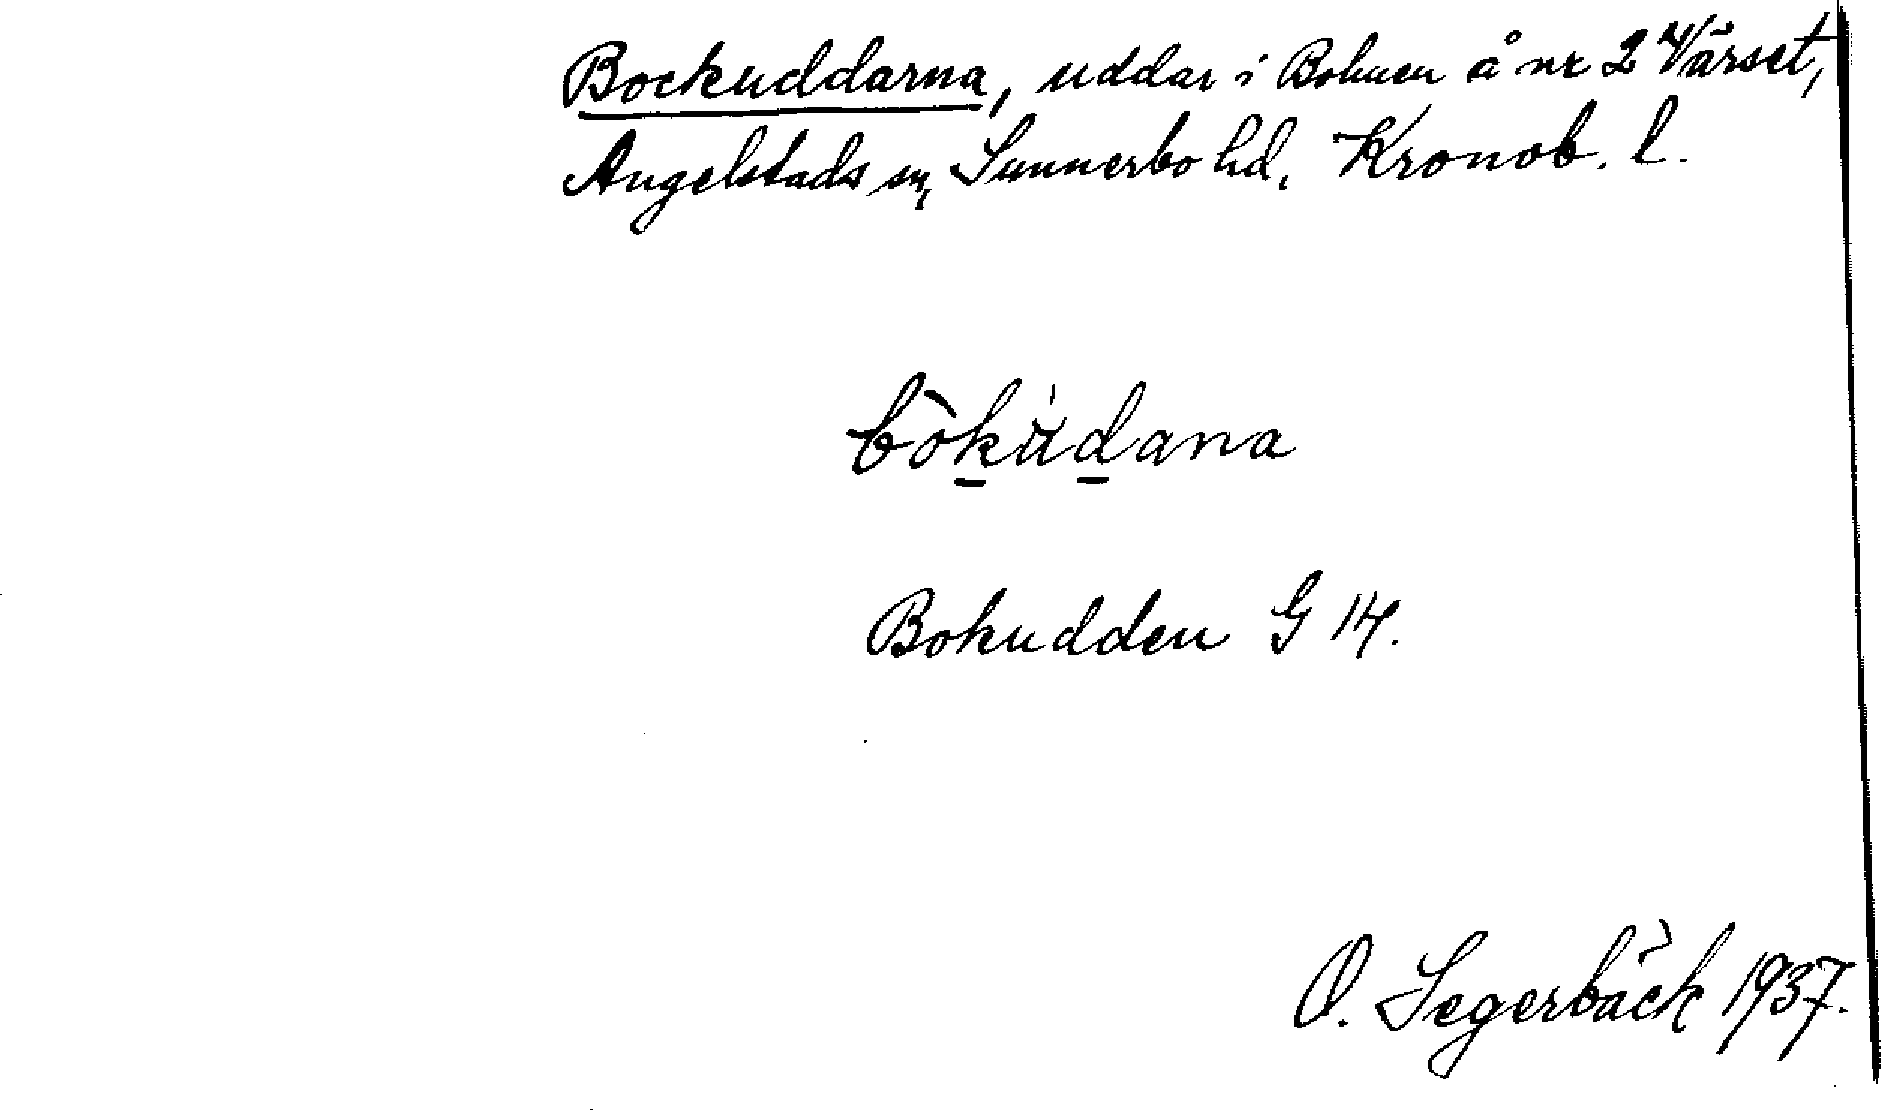 Bockuddarna, uddar i Bohuen å nr 2 Värset,
Angelstads sn, Sunnerbo hd, Kronob. l.
bòkùdana
Bokudden G 14.
O. Segerbäck 1937.